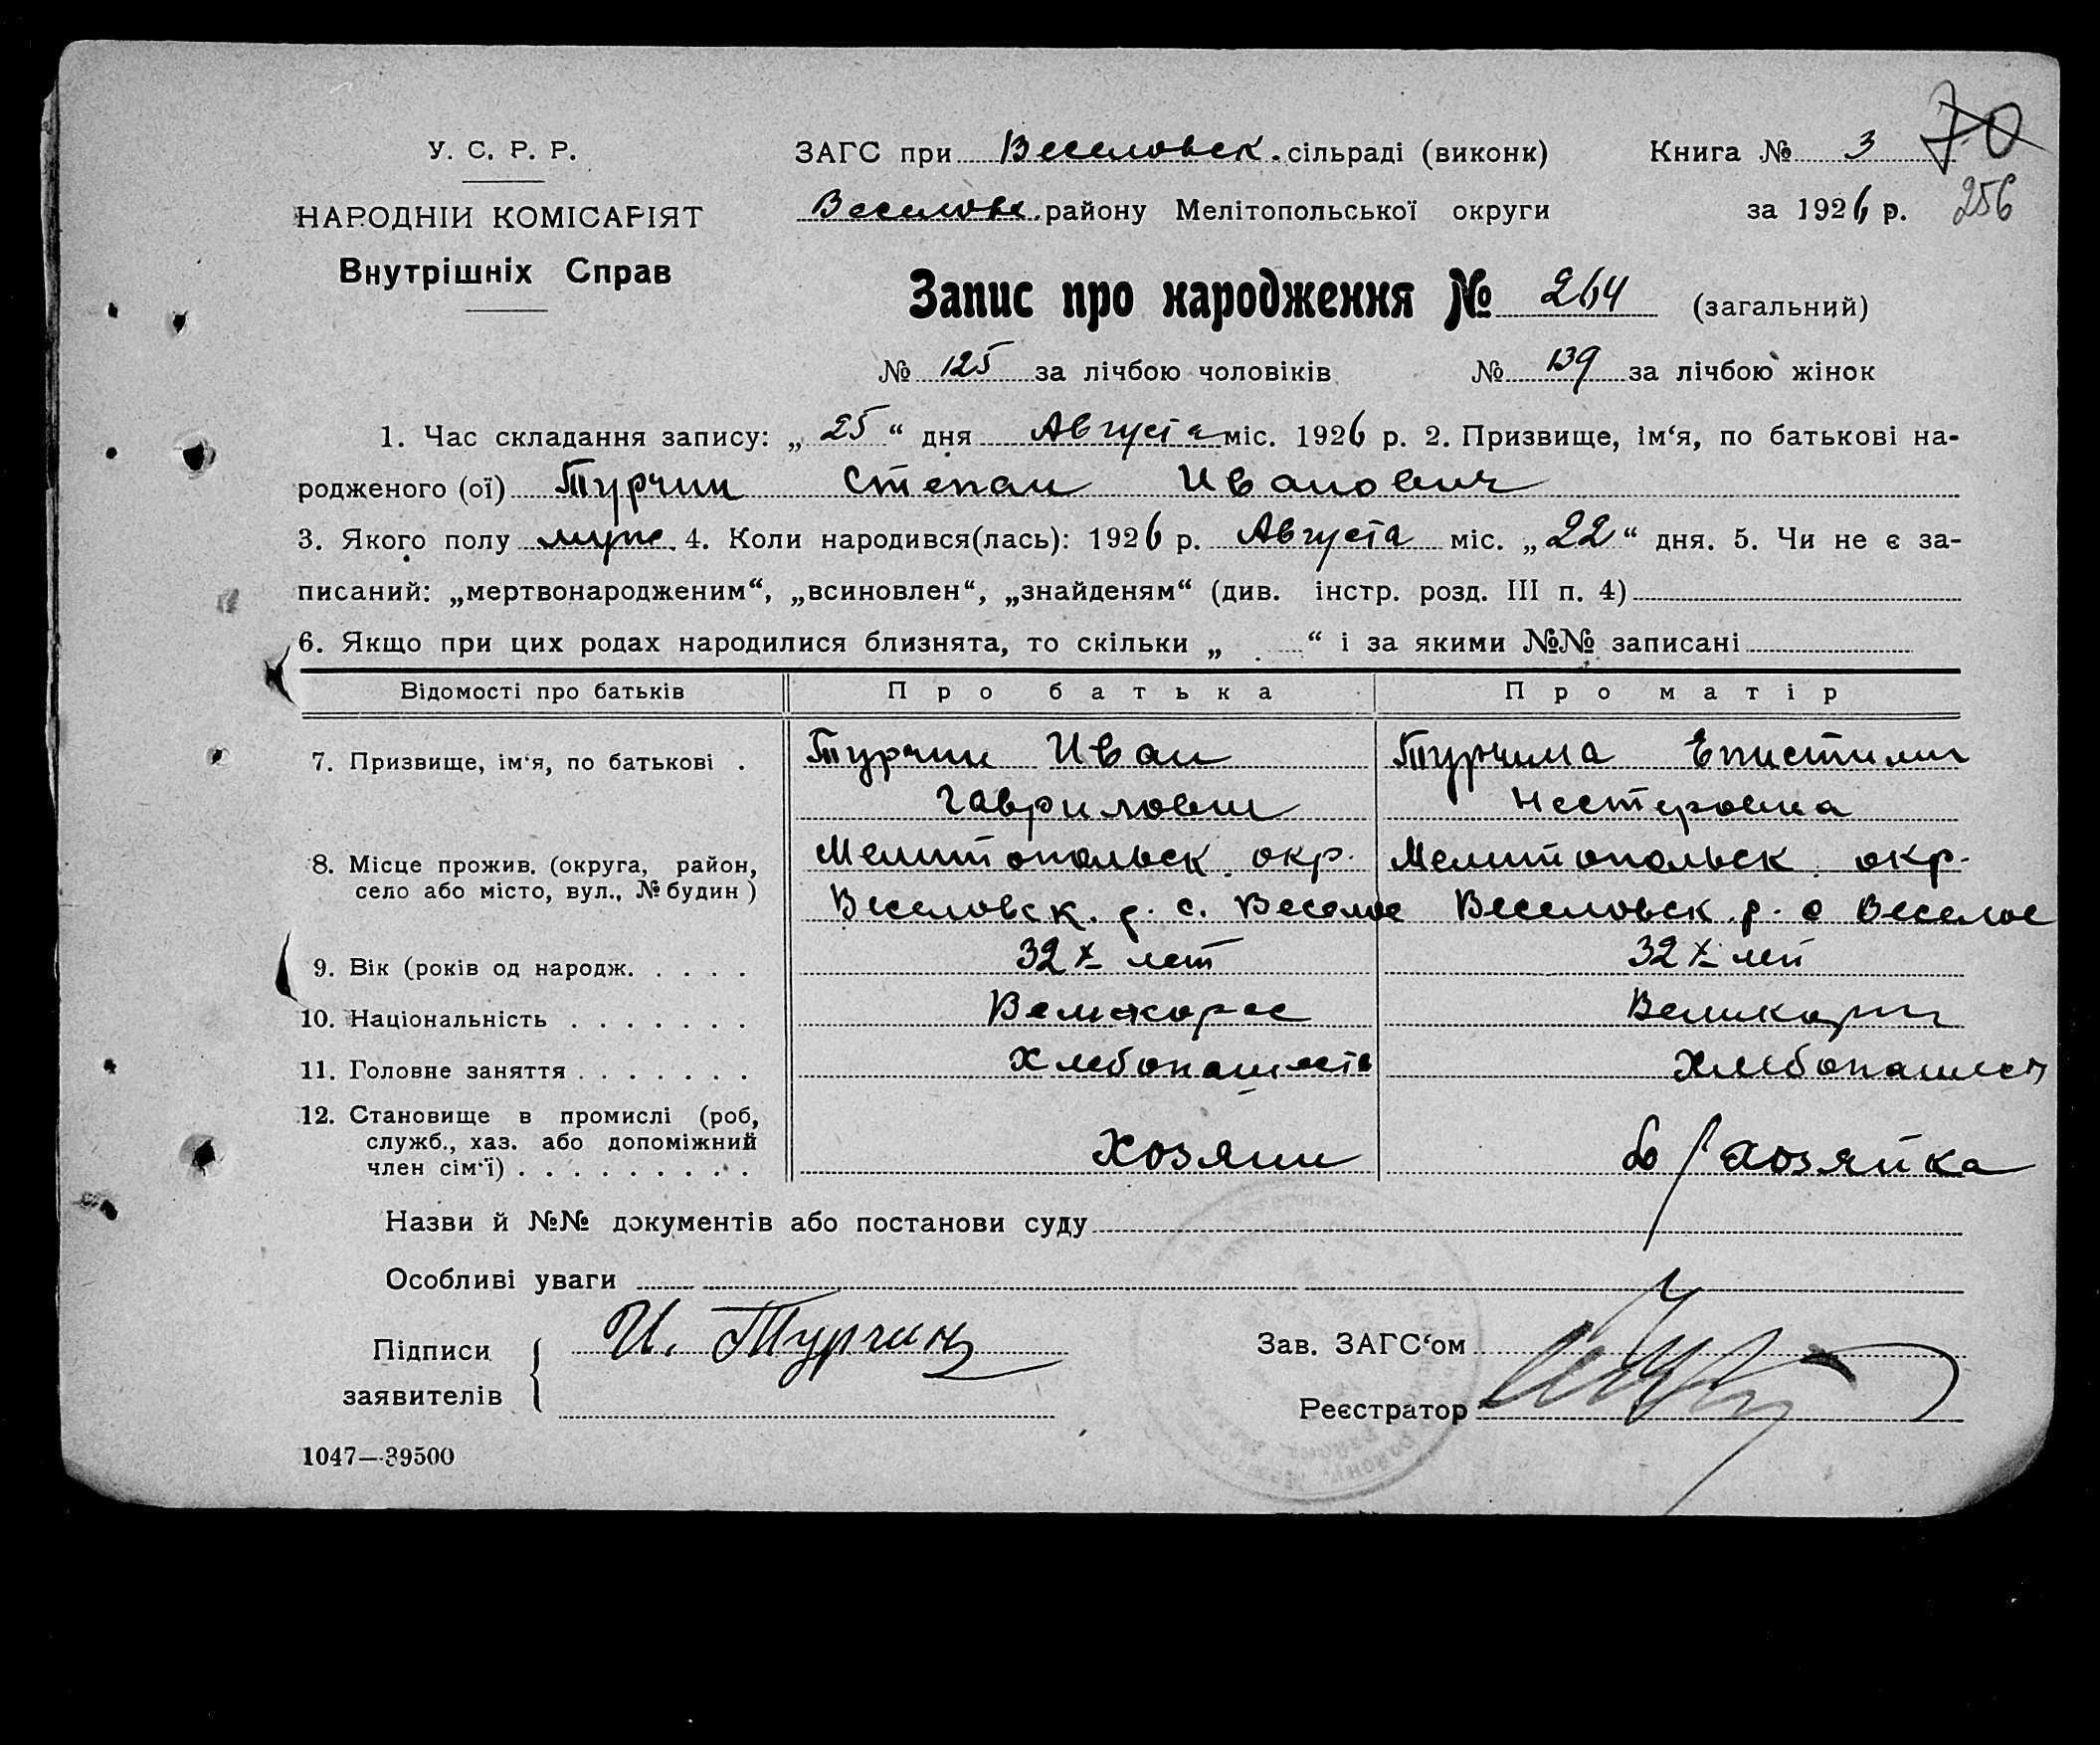 У. С. Р. Р.
НАРОДНІЙ КОМІСАРІЯТ
Внутрішніх Справ
ЗАГС при Веселовск. сільраді (виконк)
Веселовс. району Мелітопольської округи
Книга № 3
за 1926 р.
70
256
Запис про народження № 264 (загальний)
№ 125 за лічбою чоловіків № 139 за лічбою жінок
1. Час складання запису: „ 25 “ дня Августа міс. 1926 р. 2. Призвище, ім‘я, по батькові на-
родженого (ої) Турчин Степан Иванович
3. Якого полу муж. 4. Коли народився(лась): 1926 р. Августа міс. „ 22 “ дня. 5. Чи не є за-
писаний: „мертвонародженим“, „всиновлен“, „знайденям“ (див. інстр. розд. III п. 4)
6. Якщо при цих родах народилися близнята, то скільки „ “ і за якими №№ записані
Відомості про батьків Про батька Про матір
7. Призвище, ім‘я, по батькові . Турчин Иван Турчина Епистимия
Гаврилович Нестеровна
8. Місце прожив. (округа, район, Мелитопольск. окр. Мелитопольск. окр.
село або місто, вул., № будин ) Веселовск. р. с. Веселое Веселовск. р. с Веселое
9. Вік (років од народж. . . . . 32 х лет 32 х лет
10. Національність . . . . . . . Великорос
11. Головне заняття . . . . . . . Хлебопашество Хлебопашест
12. Становище в промислі (роб,
служб., хаз. або допоміжний
член сім‘ї) . . . . . . . . . Хозяин д/хозяйка
Назви й №№ документів або постанови суду
Особливі уваги
Підписи
заявителів
И. Турчин
Зав. ЗАГС‘ом
Реєстратор
1047—39500